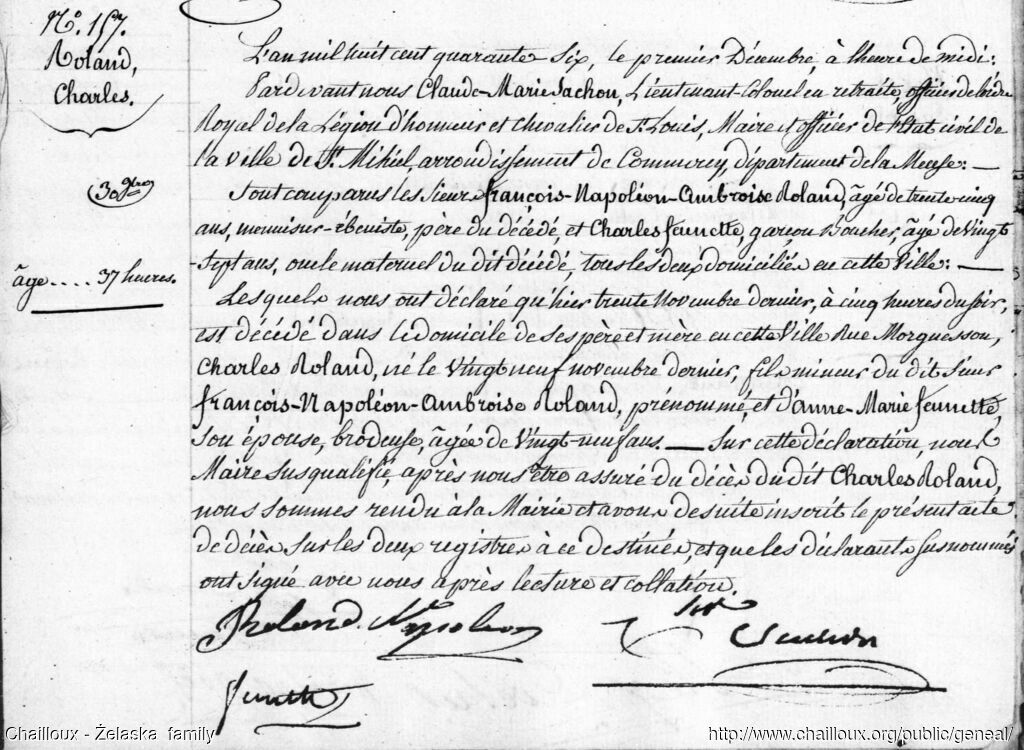 N.o 157.
Roland,
Charles.
30 9bre
âge.... 37 heures.
L'an mil huit cent quarante Six, le premier Décembre, à l'heure de midi:
Pardevant nous Claude-Marie Sachon, Lieutenant-Colonel en retraite, officier de l'ordre
Royal de la Légion d'honneur et Chevalier de St. Louis, Maire et officier de l'Etat civil de
la ville de St. Mihiel, arrondissement de Commercy, département de la Meuse: —
Sont comparus les Sieurs François-Napoléon-Ambroise Roland, âgé de trente cinq
ans, menuisier-ébéniste, père du décédé, et Charles Jeunette, garçon Boucher, âgé de Vingt
Sept ans, oncle maternel du dit décédé, tous les deux domiciliés en cette Ville: —
Lesquels nous ont déclaré qu'hier trente Novembre dernier, à cinq heures du soir,
est décédé dans le domicile de ses père et mère en cette Ville Rue Morguesson,
Charles Roland, né le Vingt neuf novembre dernier, fils mineur du dit Sieur
François-Napoléon-Ambroise Roland, prénommé, et d'Anne-Marie Jeunette,
Son épouse, brodeuse, âgée de Vingt-neuf ans. — Sur cette déclaration, nous
Maire Susqualifié, après nous être assuré du décès du dit Charles Roland,
nous sommes rendu à la Mairie et avons de suite inscrit le présent acte
de décès sur les deux registres à ce destinés, et que les déclarants Susnommés
ont Signé avec nous après lecture et collation.
Roland Napoleon
Sachon
Jeunette
Chailloux - Żelaska family
http://www.chailloux.org/public/geneal/